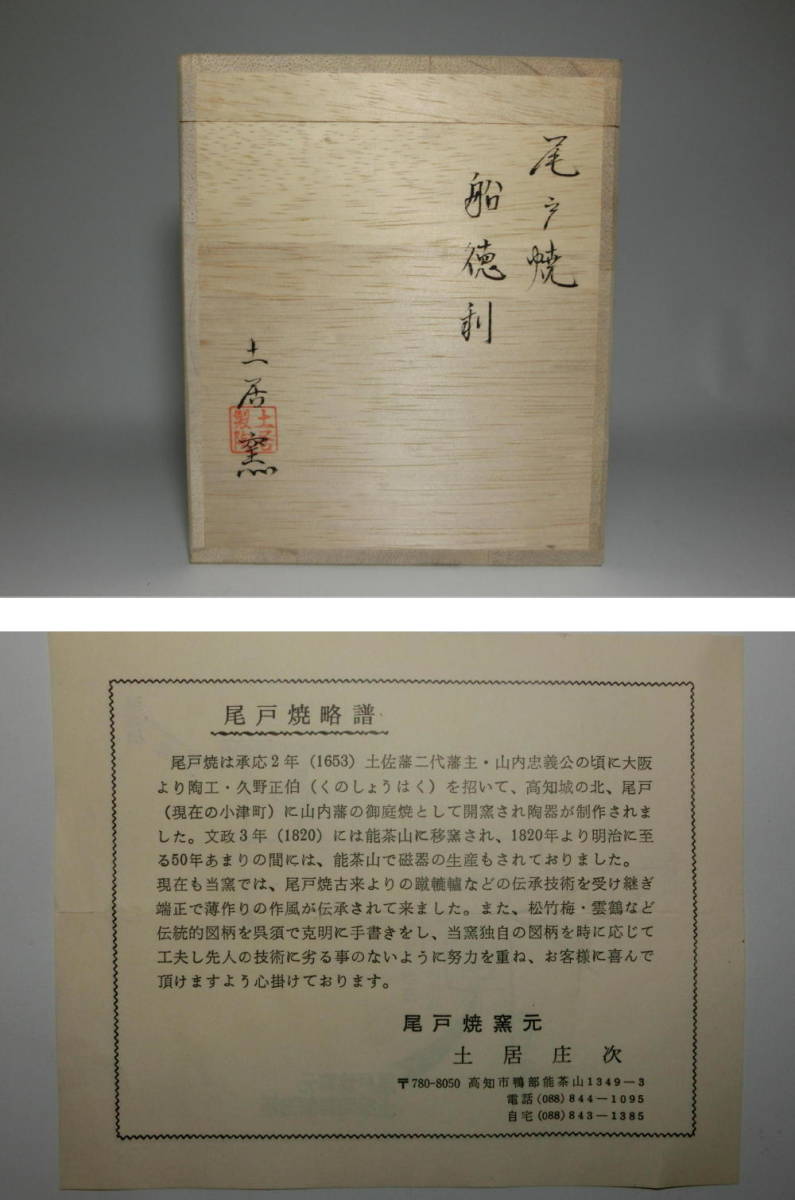 尾戸焼
船徳利
土居窯
土居
製陶
尾戸焼略譜
尾戸焼は承応2年（1653）土佐藩二代藩主・山内忠義公の頃に大阪
より陶工・久野正伯（くのしょうはく）を招いて、高知城の北、尾戸
（現在の小津町）に山内藩の御庭焼として開窯され陶器が制作されま
した。文政3年（1820）には能茶山に移窯され、1820年より明治に至
る50年あまりの間には、能茶山で磁器の生産もされておりました。
現在も当窯では、尾戸焼古来よりの蹴轆轤などの伝承技術を受け継ぎ
端正で薄作りの作風が伝承されて来ました。また、松竹梅・雲鶴など
伝統的図柄を呉須で克明に手書きをし、当窯独自の図柄を時に応じて
工夫し先人の技術に劣る事のないように努力を重ね、お客様に喜んで
頂けますよう心掛けております。
尾戸焼窯元
土居庄次
〒780-8050 高知市鴨部能茶山1349－3
電話(088)844－1095
自宅(088)843－1385